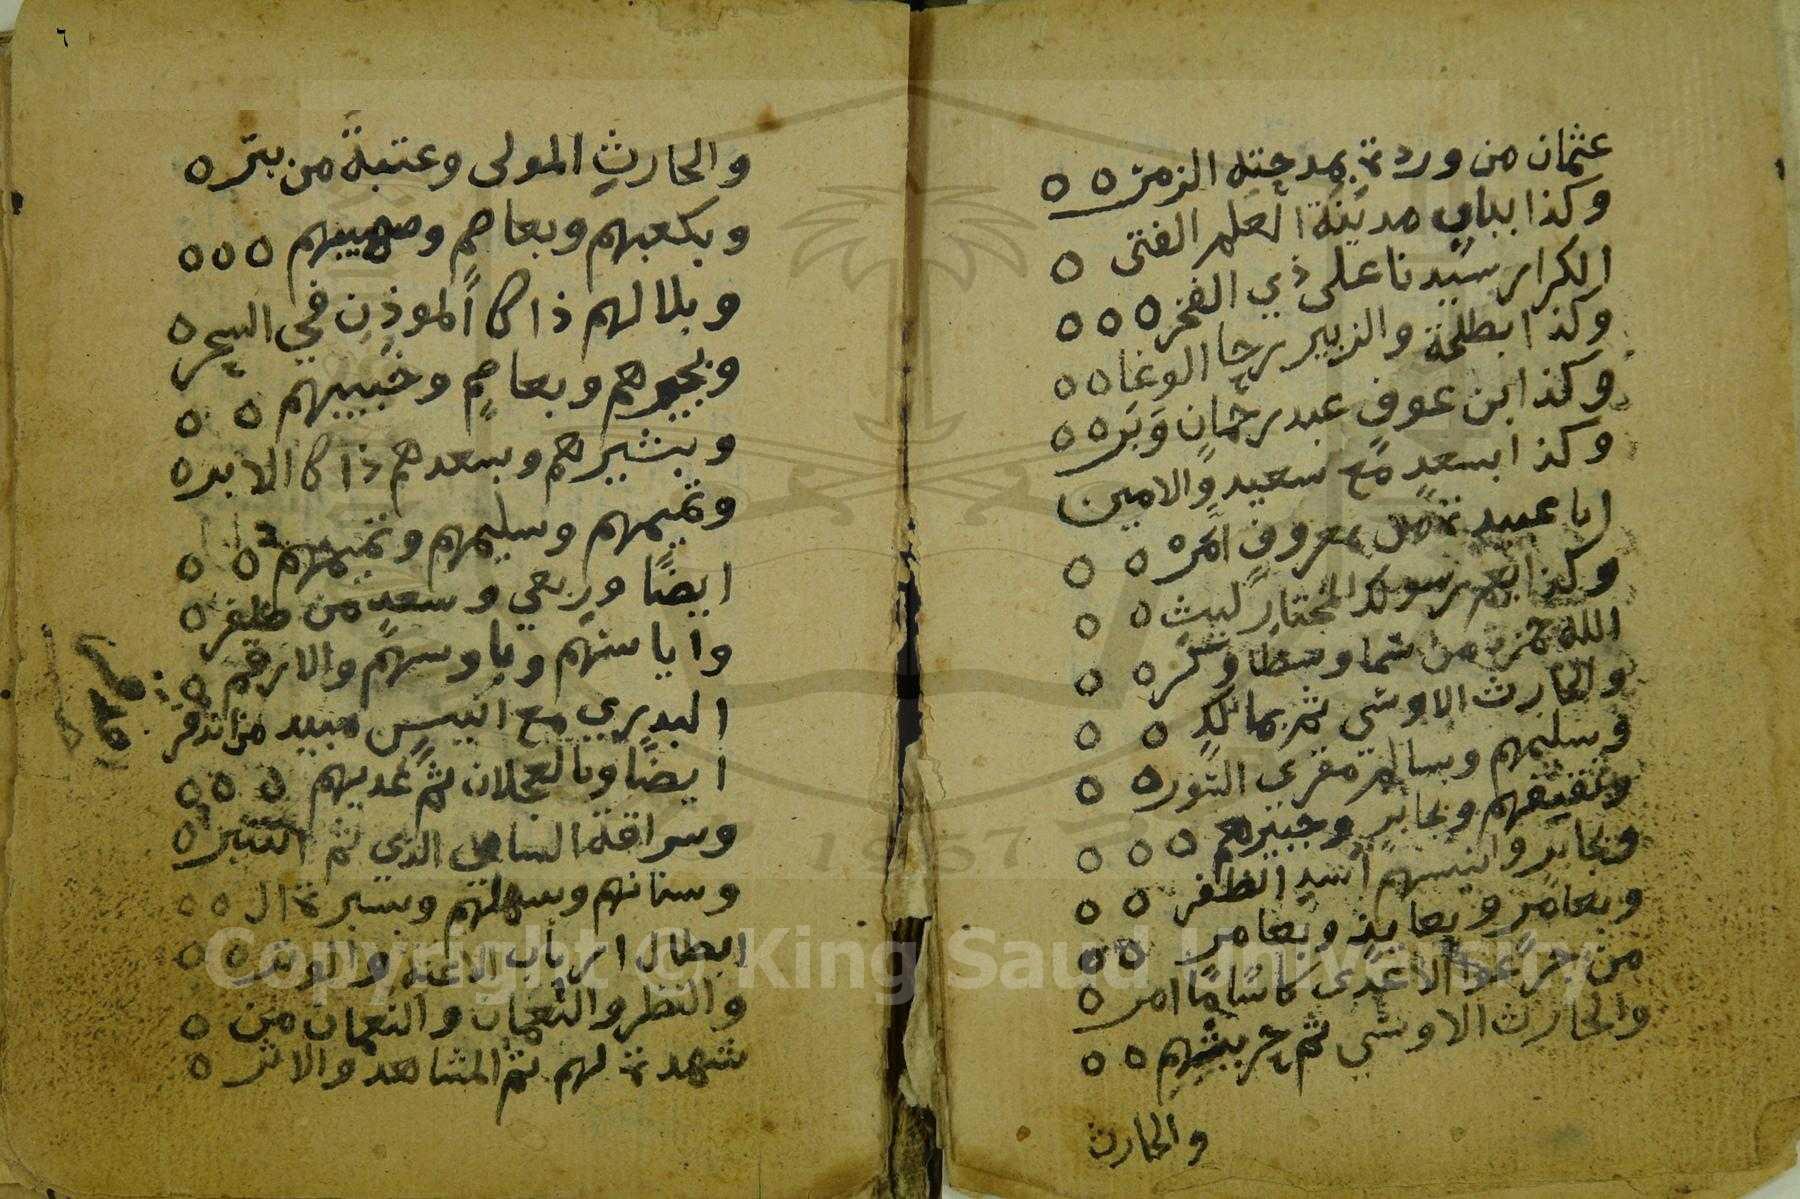 عثمان من وردت بمدحته الزمر
وكذا بباب مدينة العلم الفتى
الكرار سيدنا علي ذي الفخر
وكذا بطلحة والزبير رحا الوغا
وكذا ابن عوف عبد رحمان وبر
وكذا بسعد مع سعيد والامين
ابا عبيدة من بمعروف امر
وكذا بعم رسولك المختار ليث
الله حمزة من سما وسطا وكر
والحارث الاوسي ثم بمالك
وسليمهم وبسالم مقري السور
وثقيفهم وبجابر وجبيرهم
وبجابر وانيسهم اسد الظفر
وبعامر وبعايذ وبعامر
من جرعوا الاعدى كاسا ما امر
والحارث الاوسي ثم خربيتهم
والحارث
٦
والحارث المولى وعتبة من بتر
وبكعبهم وبعاصم وصهيبهم
وبلالهم ذاك الموذن في السحر
وبجبرهم وبعاصم وخبيبهم
وبشيرهم وبسعدهم ذاك الابر
وتميمهم وسليمهم وتميمهم
ايضا وربعي وسعد من ظفر
واياسهم وباوسهم والارقم
البدري مع انيس مبيد من
ايضا وبالعجلان ثم عديهم
وسراقة السامي الذي ثم
وسنانهم وسهلتهم وبسبرة ال
ابطال ارباب الاعنة والوتر
والنظر والنعمان والنعمان من
شهدت لهم ثم المشاهد والاثر
Copyright © King Saud University
1957